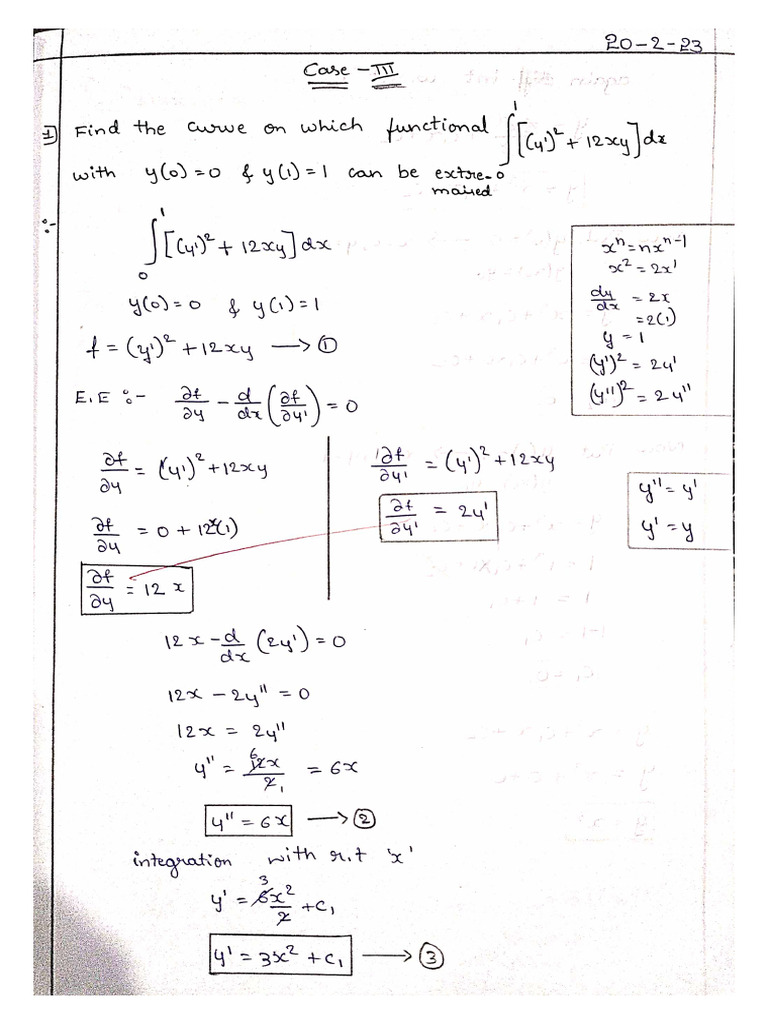 20-2-23
Case - III
1] Find the curve on which functional ∫₀¹ [(y')² + 12xy] dx
with y(0)=0 & y(1)=1 can be extremaised
:- ∫₀¹ [(y')² + 12xy] dx
y(0)=0 & y(1)=1
f = (y')² + 12xy → ①
E.E :- ∂f/∂y - d/dx (∂f/∂y') = 0
xⁿ = nxⁿ⁻¹
x² = 2x¹
dy/dx = 2x
= 2(1)
y = 1
(y')² = 2y'
(y'')² = 2y''
∂f/∂y = (y')² + 12xy
∂f/∂y = 0 + 12x(1)
∂f/∂y = 12x
∂f/∂y' = (y')² + 12xy
∂f/∂y' = 2y'
y'' = y'
y' = y
12x - d/dx (2y') = 0
12x - 2y'' = 0
12x = 2y''
y'' = 12x/2 = 6x
y'' = 6x → ②
integration with r.t 'x'
y' = 6x²/2 + c₁
y' = 3x² + c₁ → ③